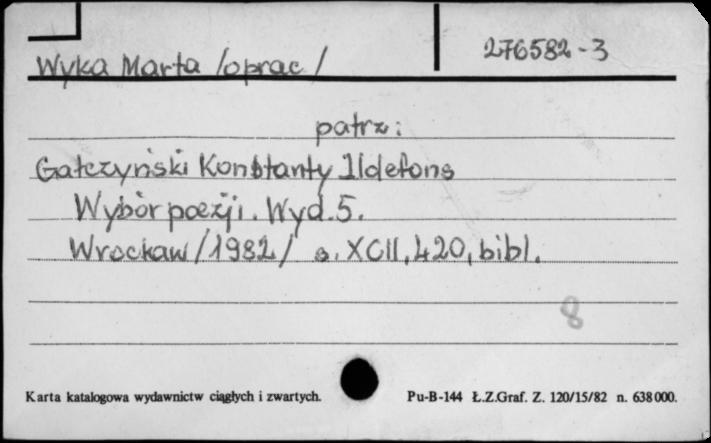 Wyka Marta /oprac/ 276582-3
patrz:
Gałczyński Konstanty Ildefons
Wybór poezji. Wyd. 5.
Wrocław /1982/ s. XCII, 420, bibl.
8
Karta katalogowa wydawnictw ciągłych i zwartych. Pu-B-144 Ł.Z.Graf. Z. 120/15/82 n. 638000.